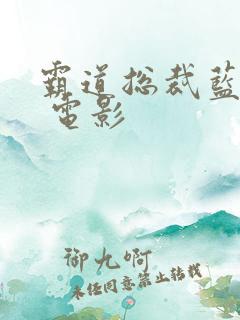 霸道总裁蓝
電影
御九啊
未经同意禁止转载